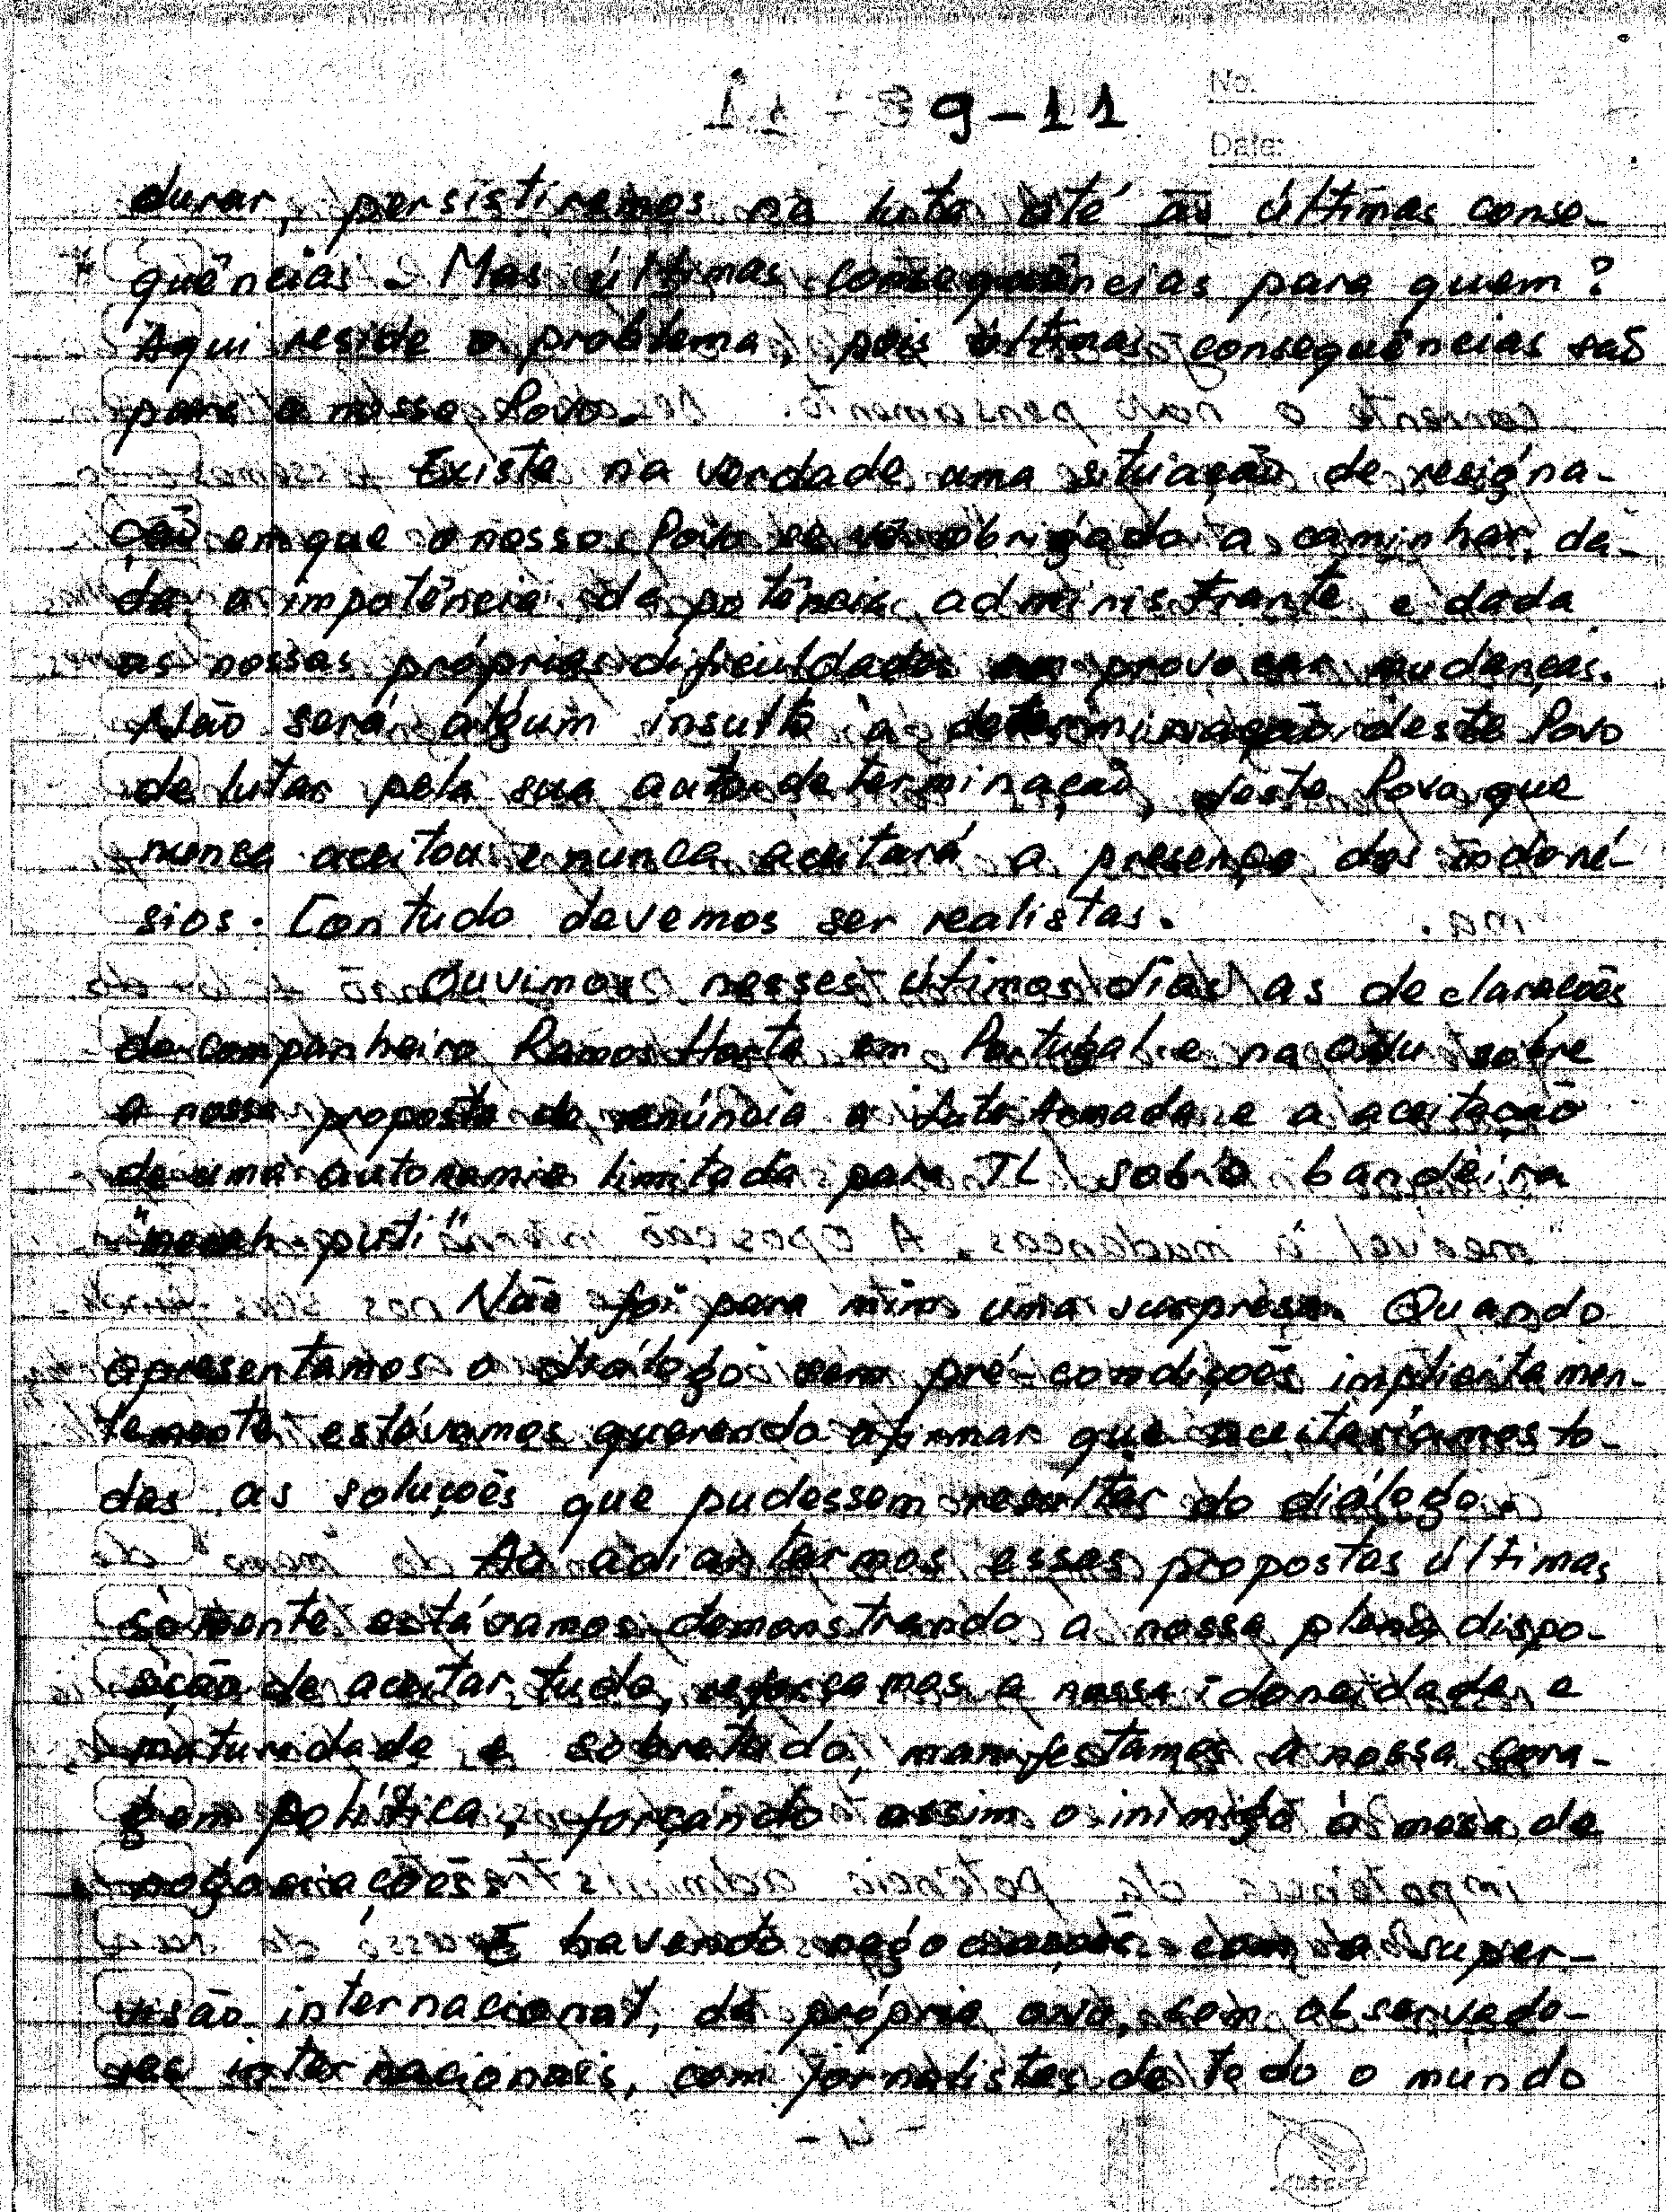 9-11
No.
Date:
durar, persistiremos na luta até às últimas conse-
quências. Mas últimas consequências para quem?
Aqui reside o problema, pois últimas consequências saõ
para o nosso Povo.
Existe na verdade uma situaçaõ de resigna-
çaõ em que o nosso Povo se vê obrigado a caminhar, da-
da a impotência da potência administrante e dada
as nossas próprias dificuldades em provocar mudanças.
Não será algum insulto à determinação deste Povo
de lutar pela sua autodeterminaçaõ, deste Povo que
nunca aceitou e nunca aceitará a presença dos indoné-
sios. Contudo devemos ser realistas.
Ouvimos nesses útimos dias as declaraçoẽs
do companheiro Ramos Horta em Portugal e na ONU sobre
a nossa proposta de renúncia a luta armada e a aceitação
de uma autonomia limitada para TL sob a bandeira
"merah-puti"
Não foi para mim uma surpresa. Quando
apresentamos o diálogo sem pré-condiçoẽs implicitamen-
temente estávamos querendo afirmar que aceitaríamos to-
das as soluçoẽs que pudessem resultar do diálogo.
Ao adiantarmos essas propostas últimas
sòmente estávamos demonstrando a nossa plena dispo-
siçaõ de aceitar tudo, reforçamos a nossa idoneidade e
maturidade e sobretudo, manifestamos a nossa cora-
gem política, forçando assim o inimigo à mesa de
negociaçoẽs
E havendo negociaçoẽs com a super-
visão internacional, da própria ONU, com observado-
res internacionais, com jornalistas de todo o mundo